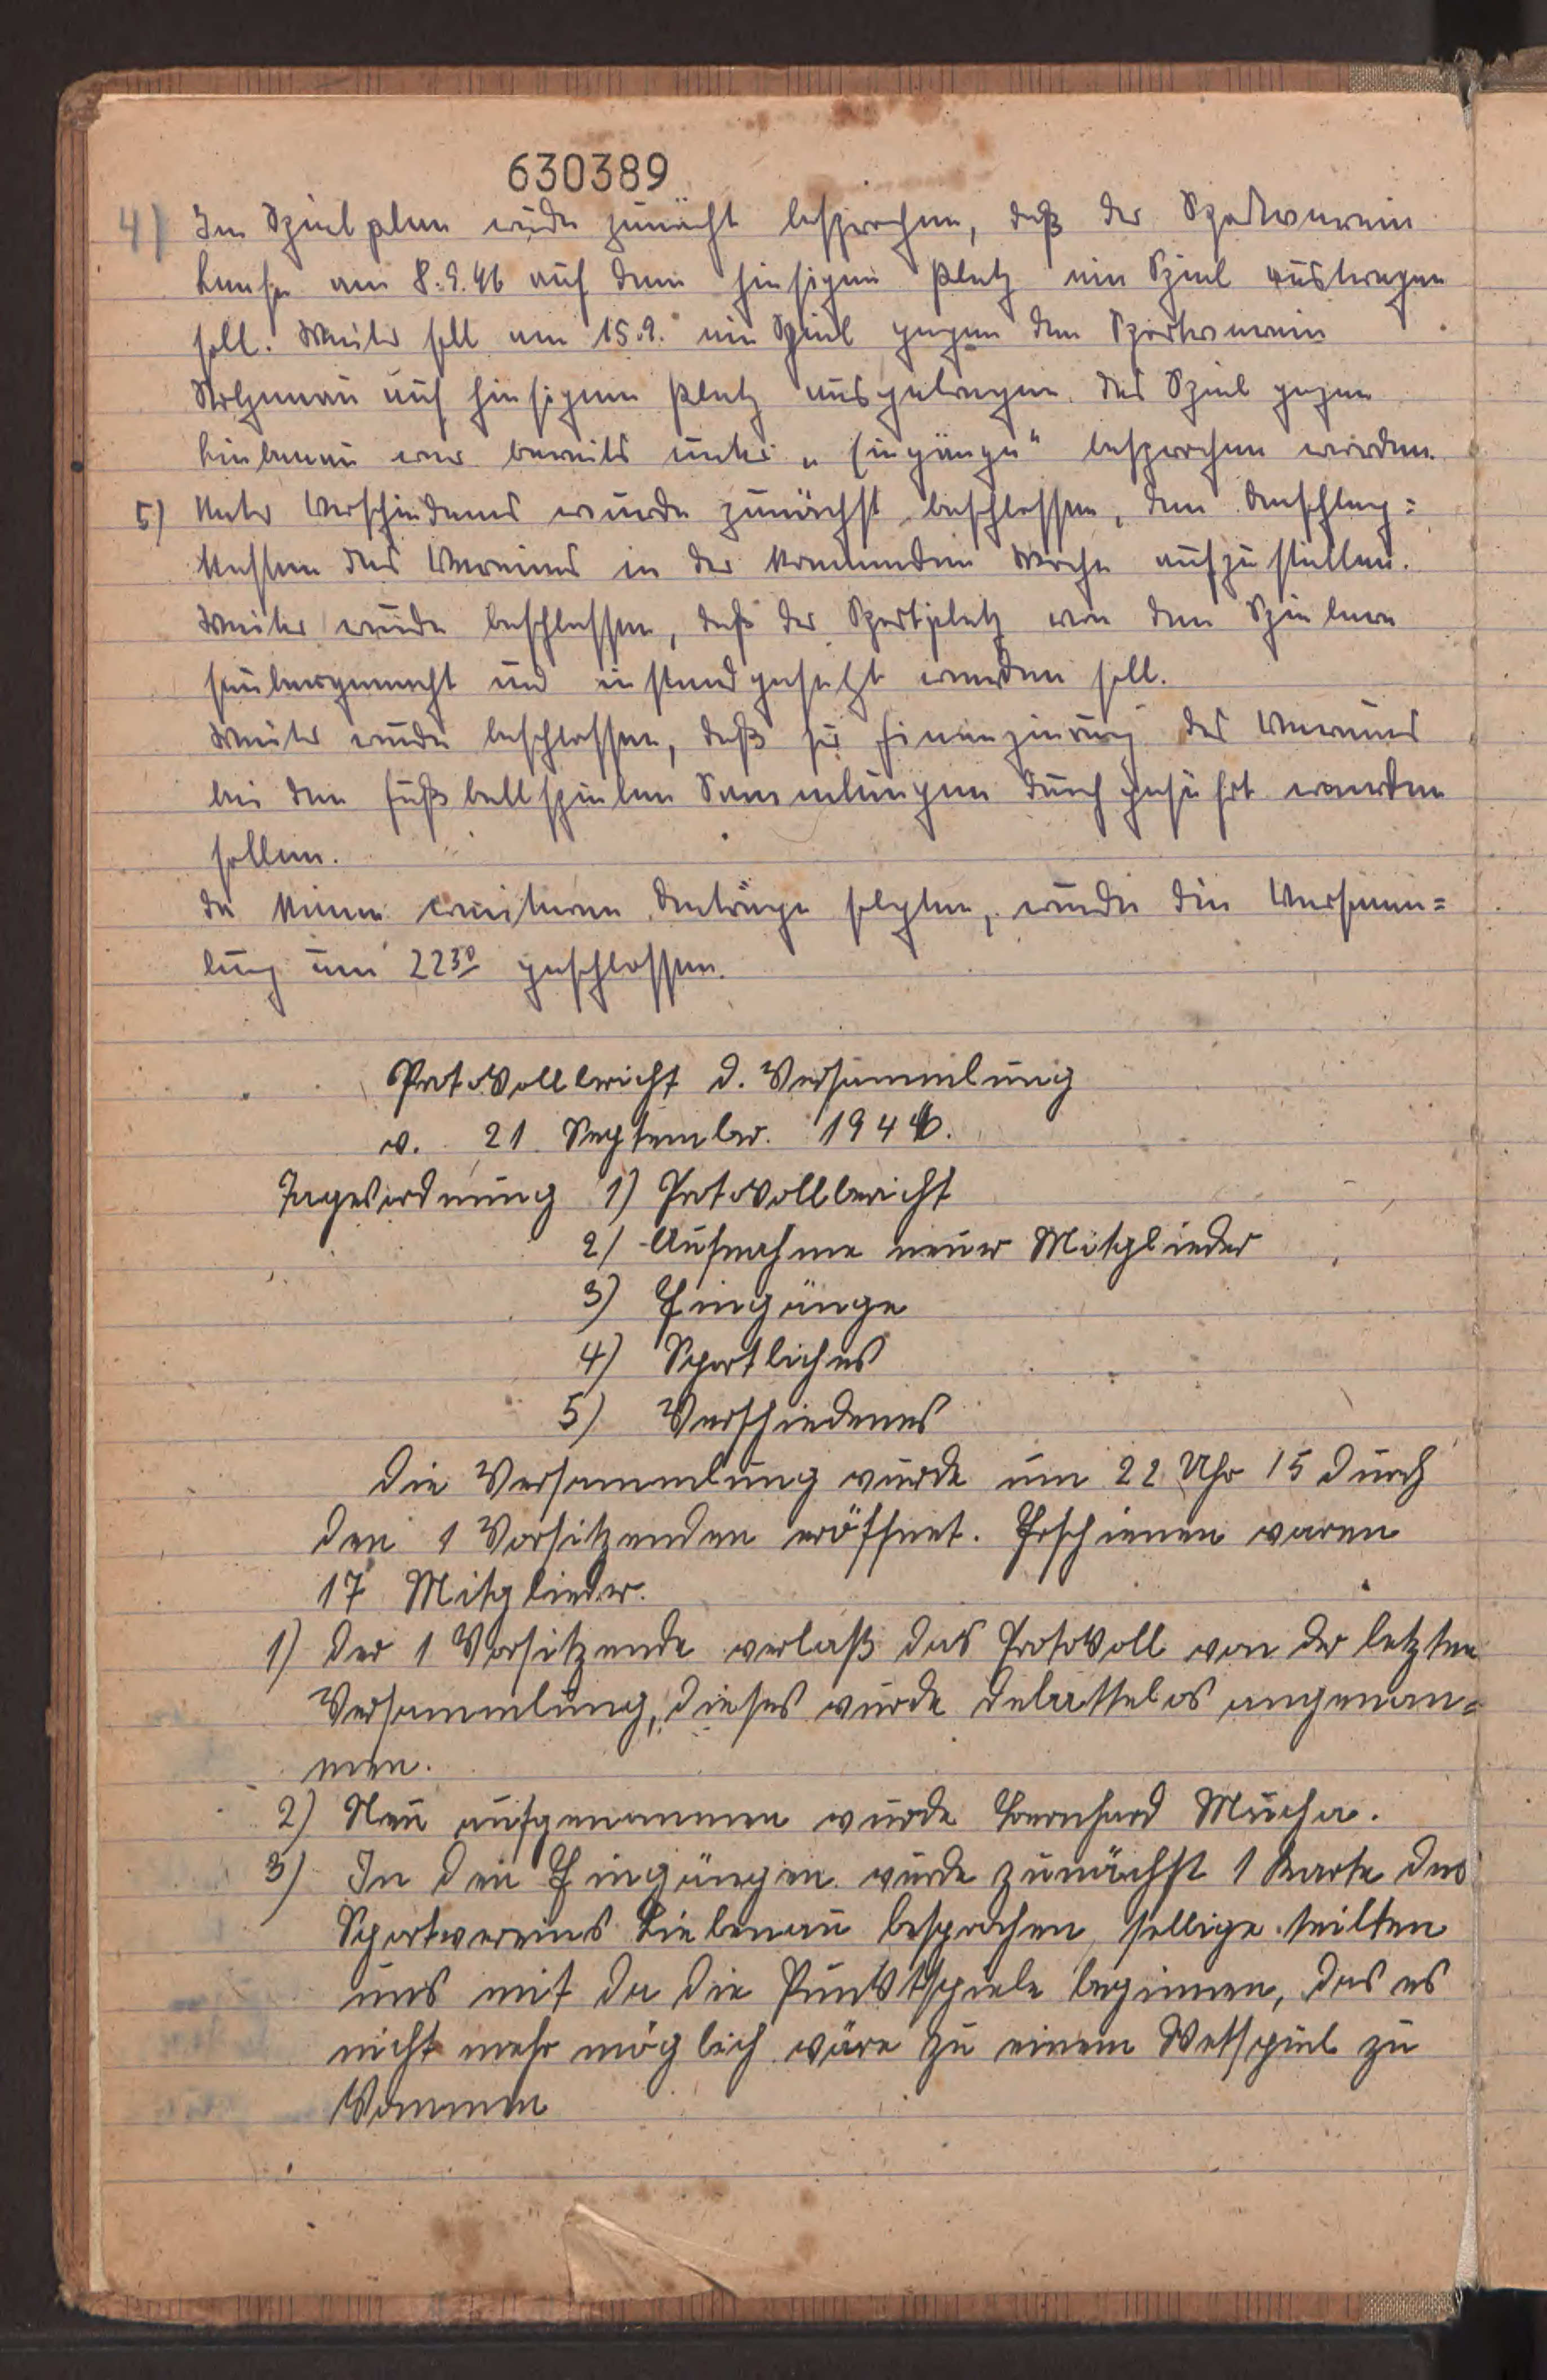 630389
4) Im Spielplan wurde zunächt besprochen, daß der Sportverein
Leese am 8.9.46 auf dem hiesigen Platz ein Spiel austragen
soll. Weiter soll am 15.9. ein Spiel gegen den Sportverein
Stolzenau auf hiesigem Platz ausgetragen. Das Spiel gegen
Liebenau war bereits unter „Eingänge“ besprochen worden.
5) Unter Verschiedenes wurde zunächst beschlossen, den Anschlag=
kasten des Vereins in der kommenden Woche aufzustellen.
Weiter wurde beschlossen, daß der Sportplatz von den Spielern
saubergemacht und instandgesetzt werden soll.
Weiter wurde beschlossen, daß für Finanzierung des Vereins
bei den Fußballspielen Sammlungen durchgeführt werden
sollen.
Da keine weiteren Anträge folgten, wurde die Versamm=
lung um 22³⁰ geschlossen.
Protokollbericht d. Versammlung
v. 21. September. 1946.
Tagesordnung 1) Protokollbericht
2) Aufnahme neuer Mitglieder
3) Eingänge
4) Sportliches
5) Verschiedenes
Die Versammlung wurde um 22 Uhr 15 durch
den 1 Vorsitzenden eröffnet. Erschienen waren
17 Mitglieder.
1) Der 1 Vorsitzende verlaß das Protokoll von der letzten
Versammlung, dieses wurde debattelos angenom=
men.
2) Neu aufgenommen wurde Bernhard Mucha.
3) In den Eingängen wurde zunächst 1 Karte des
Sportvereins Liebenau besprochen, sellige teilten
uns mit da die Punktspiele beginnen, das es
nicht mehr möglich wäre zu einem Wetspiel zu
kommen